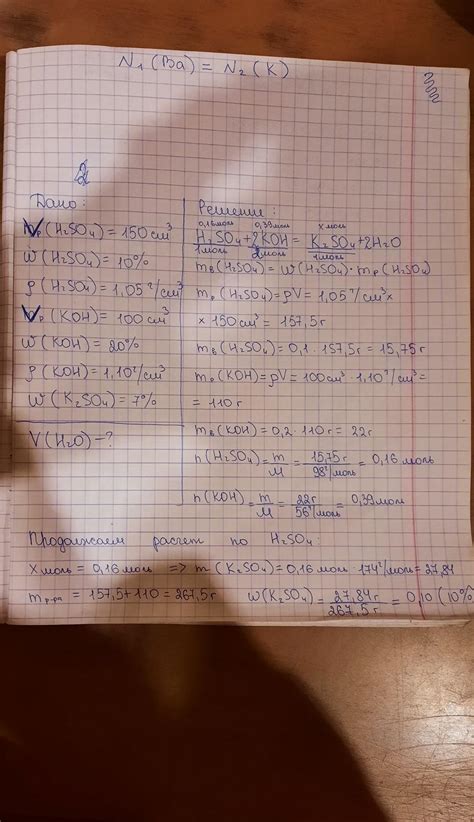 N₁(Ba) = N₂(K)
2
Дано:
Vр(H₂SO₄) = 150 см³
W(H₂SO₄) = 10%
ρ(H₂SO₄) = 1,05 г/см³
Vр(KOH) = 100 см³
W(KOH) = 20%
ρ(KOH) = 1,10 г/см³
W(K₂SO₄) = 7%
V(H₂O) - ?
Решение:
0,16 моль 0,39 моль x моль
H₂SO₄ + 2KOH = K₂SO₄ + 2H₂O
1 моль 2 моль 1 моль
mв(H₂SO₄) = W(H₂SO₄) · mр(H₂SO₄)
mр(H₂SO₄) = ρV = 1,05 г/см³ ×
× 150 см³ = 157,5 г
mв(H₂SO₄) = 0,1 · 157,5 г = 15,75 г
mр(KOH) = ρV = 100 см³ · 1,10 г/см³ =
= 110 г
mв(KOH) = 0,2 · 110 г = 22 г
n(H₂SO₄) = m/M = 15,75 г / 98 г/моль = 0,16 моль
n(KOH) = m/M = 22 г / 56 г/моль = 0,39 моль
Продолжаем расчет по H₂SO₄:
x моль = 0,16 моль => m(K₂SO₄) = 0,16 моль · 174 г/моль = 27,84
mр-ра = 157,5 + 110 = 267,5 г W(K₂SO₄) = 27,84 г / 267,5 г = 0,10 (10%